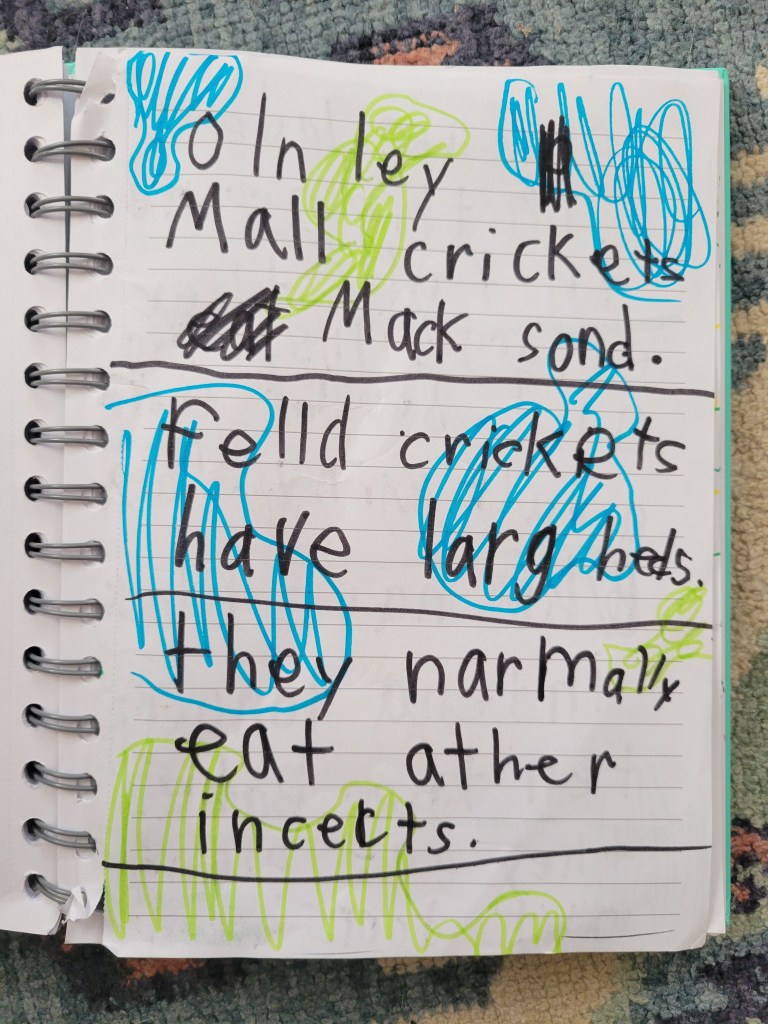 olnley
Mall crickets
Mack sond.
Felld crickets
have larg heds.
they narmally
eat ather
incects.